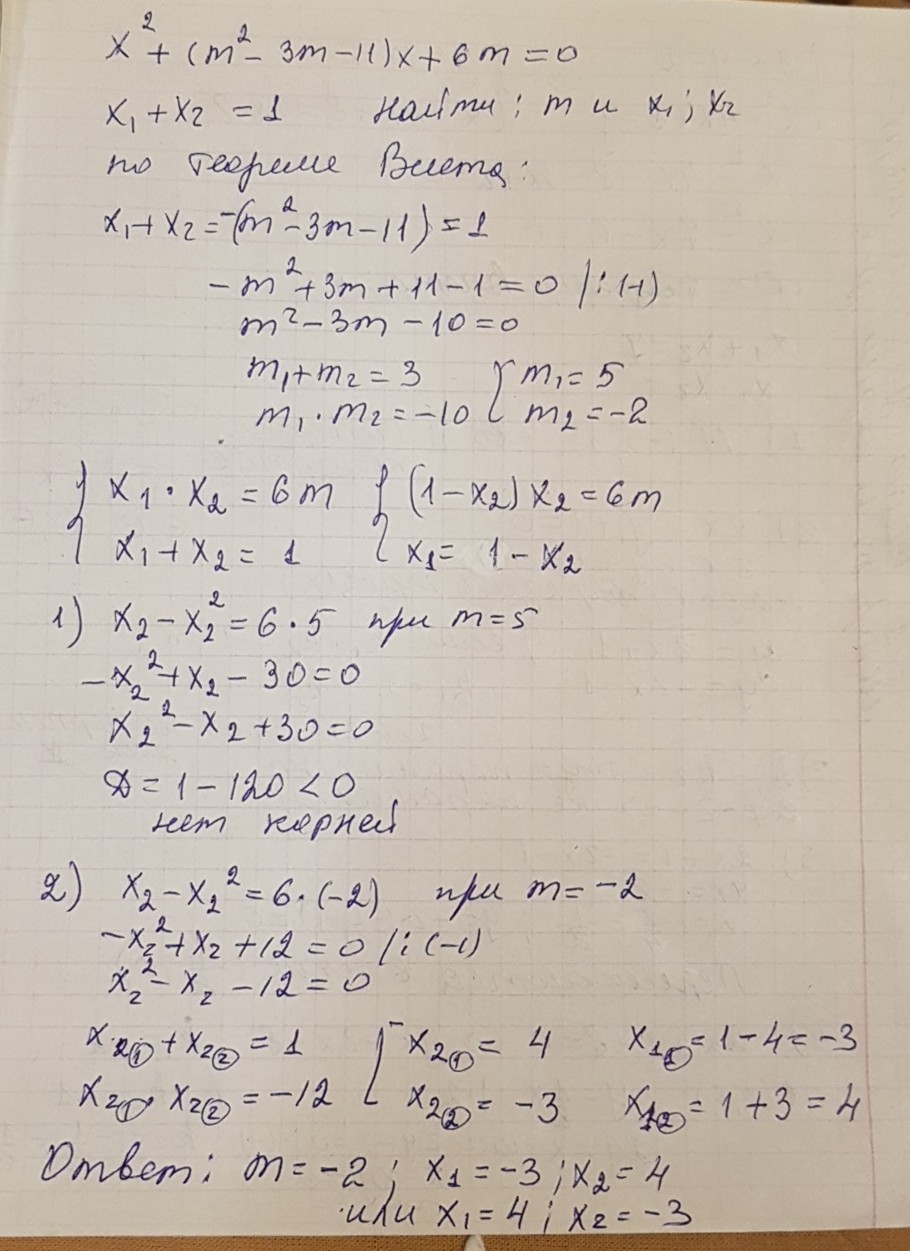 x² + (m² - 3m - 11)x + 6m = 0
x₁ + x₂ = 1 найти: m и x₁; x₂
по теореме Виета:
x₁ + x₂ = -(m² - 3m - 11) = 1
- m² + 3m + 11 - 1 = 0 /: (-1)
m² - 3m - 10 = 0
m₁ + m₂ = 3 { m₁ = 5
m₁ · m₂ = -10 m₂ = -2
{ x₁ · x₂ = 6m { (1 - x₂) x₂ = 6m
x₁ + x₂ = 1 x₁ = 1 - x₂
1) x₂ - x₂² = 6 · 5 при m = 5
-x₂² + x₂ - 30 = 0
x₂² - x₂ + 30 = 0
D = 1 - 120 < 0
нет корней
2) x₂ - x₂² = 6 · (-2) при m = -2
-x₂² + x₂ + 12 = 0 /: (-1)
x₂² - x₂ - 12 = 0
x₂① + x₂② = 1 [ x₂① = 4 x₁① = 1 - 4 = -3
x₂① · x₂② = -12 x₂② = -3 x₁② = 1 + 3 = 4
Ответ: m = -2; x₁ = -3; x₂ = 4
или x₁ = 4; x₂ = -3